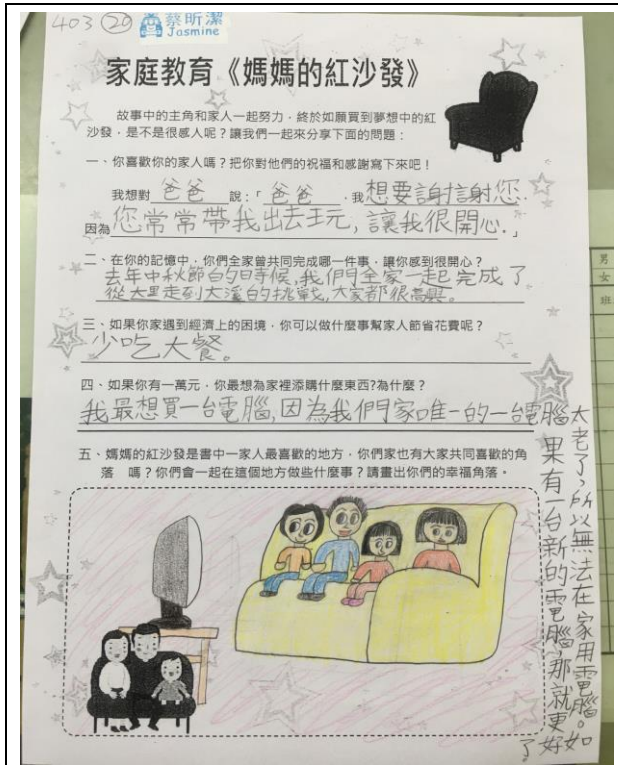 403 ⑳ 蔡昕潔
Jasmine
家庭教育《媽媽的紅沙發》
故事中的主角和家人一起努力，終於如願買到夢想中的紅
沙發，是不是很感人呢？讓我們一起來分享下面的問題：
一、你喜歡你的家人嗎？把你對他們的祝福和感謝寫下來吧！
我想對 爸爸 說：「 爸爸 ，我想要謝謝您，
因為您常常帶我出去玩，讓我很開心。」
二、在你的記憶中，你們全家曾共同完成哪一件事，讓你感到很開心？
去年中秋節的時候，我們全家一起完成了
從大里走到大溪的挑戰，大家都很高興。
三、如果你家遇到經濟上的困境，你可以做什麼事幫家人節省花費呢？
少吃大餐。
四、如果你有一萬元，你最想為家裡添購什麼東西?為什麼？
我最想買一台電腦，因為我們家唯一的一台電腦
太老了，所以無法在家用電腦。如
果有一台新的電腦，那就更好
了
五、媽媽的紅沙發是書中一家人最喜歡的地方，你們家也有大家共同喜歡的角
落 嗎？你們會一起在這個地方做些什麼事？請畫出你們的幸福角落。
男
女
班